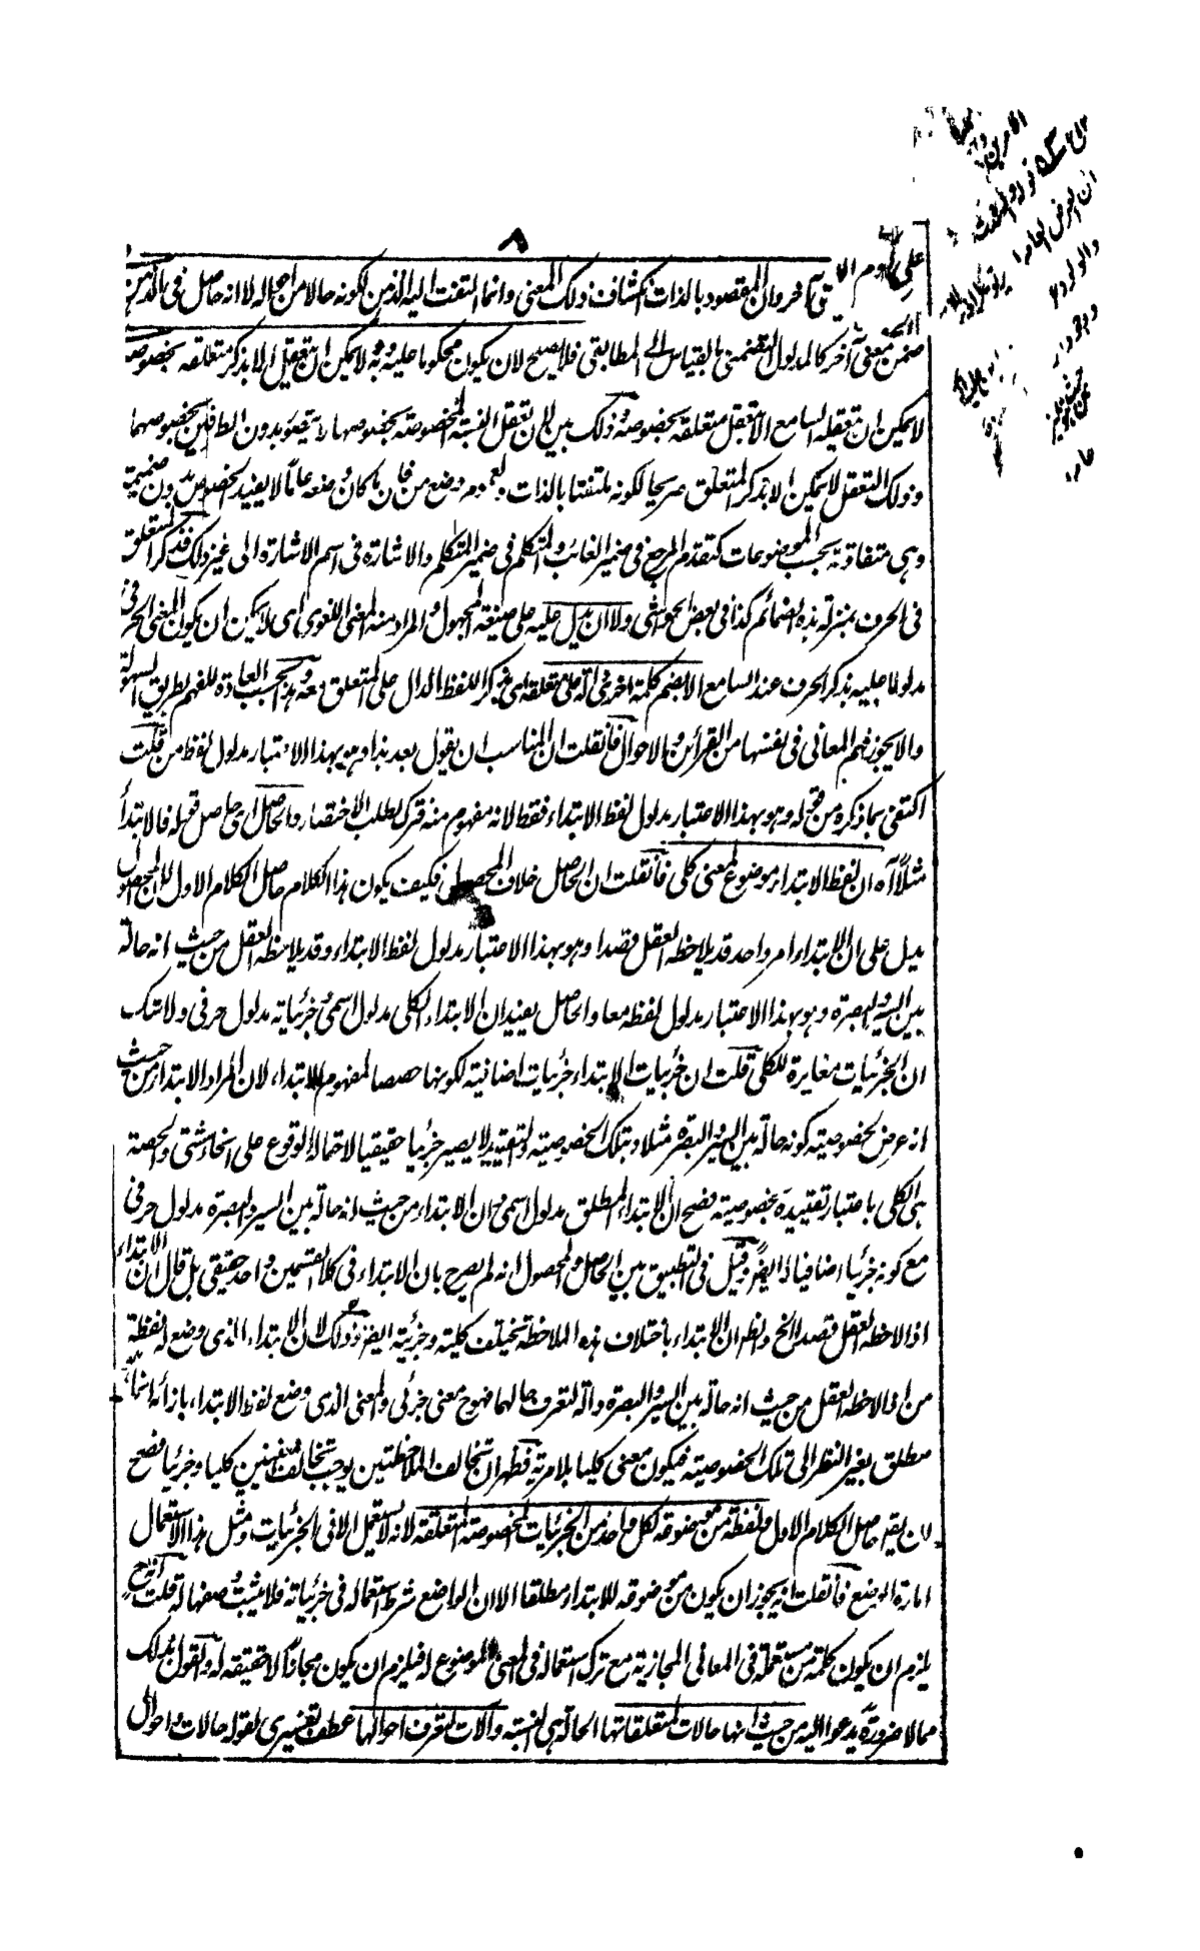 ٨
المقصود بالذات انكشاف ذلك المعنى وانما التفت اليه الذهن لكونه حالا من احواله لا انه حاصل فى الذهن
ضمن معنى آخر كالمدلول التضمنى بالقياس الى المطابقى فلا يصح لان يكون محكوما عليه وبه ولا يمكن ان يتعقل الا بذكر متعلقه بخصوصه
لا يمكن ان يتعقله السامع الا بتعقل متعلقه بخصوصه وذلك بين لان تعقل النسبة المخصوصة بخصوصها لا يتصور بدون الطرفين بخصوصهما
وذلك التعقل لا يمكن الا بذكر المتعلق صريحا لكونه ملتفتا بالذات ولعموم وضع من فان ما كان وضعه عاما لا يفيد الخصوص بدون ضميمة
وهى متفاوتة بحسب الموضوعات كتقدم المرجع فى ضمير الغائب والتكلم فى ضمير المتكلم والاشارة فى اسم الاشارة الى غير ذلك فذكر المتعلق
فى الحرف بمنزلة هذه الضمائم كذا فى بعض الحواشى ولا ان يدل عليه على صيغة المجهول والمراد منه المعنى اللغوى اى لا يمكن ان يكون المعنى الحرفى
مدلولا عليه بذكر الحرف عند السامع الا بضم كلمة اخرى دالة على متعلقه اى بذكر اللفظ الدال على المتعلق معه وهذا بحسب العادة للفهم بطريق السهولة
والا يجوز فهم المعانى فى نفسها من القرائن والاحوال فانقلت ان المناسب ان يقول بعد هذا وهو بهذا الاعتبار مدلول لفظ من قلت
اكتفى بما ذكره من قوله وهو بهذا الاعتبار مدلول لفظ الابتداء فقط لانه مفهوم منه فترك لطلب الاختصار والحاصل اى حاصل قوله فالابتداء
مثلا آه ان لفظ الابتداء موضوع لمعنى كلى فانقلت ان الحاصل خلاف المحصول فكيف يكون هذا الكلام حاصل الكلام الاول لان المحصول
يدل على ان الابتداء امر واحد قد يلاحظه العقل قصدا وهو بهذا الاعتبار مدلول لفظ الابتداء وقد يلاحظه العقل من حيث انه حالة
بين السير والبصرة وهو بهذا الاعتبار مدلول لفظه معا والحاصل يفيد ان الابتداء الكلى مدلول اسمى وجزئياته مدلول حرفى ولا شك
ان الجزئيات مغايرة للكلى قلت ان جزئيات الابتداء جزئيات اضافية لكونها حصصا لمفهوم الابتداء لان المراد الابتداء من حيث
انه عرض لخصوصية كونه حالة بين السير والبصرة مثلا وبتلك الخصوصية والتقييد لا يصير جزئيا حقيقيا لاحتماله الوقوع على انحاء شتى والحصة
هى الكلى باعتبار تقييده بخصوصية فصح ان الابتداء المطلق مدلول اسمى وان الابتداء من حيث انه حالة بين السير والبصرة مدلول حرفى
مع كونه جزئيا اضافيا ايضا وقيل فى التطبيق بين الحاصل والمحصول انه لم يصرح بان الابتداء فى كلا القسمين واحد حقيقى بل قال ان الابتداء
اذا لاحظه العقل قصدا الخ وظهر ان الابتداء باختلاف هذه الملاحظة تختلف كليته وجزئيته ايضا وذلك لان الابتداء الذى وضع له لفظة
من اذا لاحظه العقل من حيث انه حالة بين السير والبصرة وآلة لتعرف حالهما فهو ح معنى جزئى والمعنى الذى وضع لفظ الابتداء بازائه انما
مطلق بغير النظر الى تلك الخصوصية فيكون معنى كليا بلا مرية فظهر ان تخالف الملاحظتين يوجب تخالف المعنيين كليا وجزئيا فصح
ان يقول حاصل الكلام الاول ولفظة من موضوعة لكل واحد من الجزئيات المخصوصة المتعلقة لانه لا يستعمل الا فى الجزئيات ومثل هذا الاستعمال
امارة الوضع فانقلت انه يجوز ان يكون من موضوعة للابتداء مطلقا الا ان الواضع شرط استعماله فى جزئياته فلا يثبت وضعها له قلت ح
يلزم ان يكون كلمة من مستعملة فى المعانى المجازية مع ترك استعماله فى المعنى الموضوع له فيلزم ان يكون مجازا لا حقيقة له والقول بذلك
مما لا ضرورة يدعو اليه من حيث انها حالات لمتعلقاتها الحالة هى النسبة وآلات لتعرف احوالها عطف تفسيرى لقوله حالات واحوال